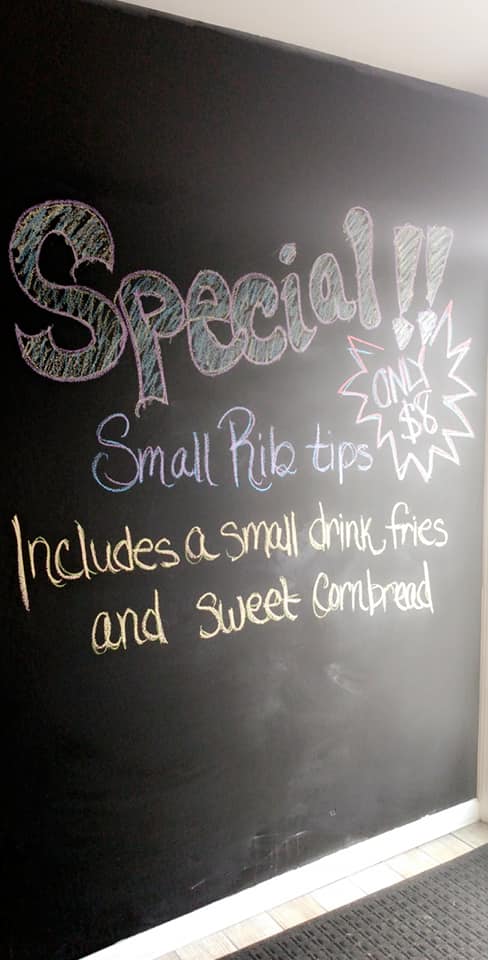 Special!!
ONLY
$8
Small Rib tips
Includes a small drink fries
and sweet Cornbread